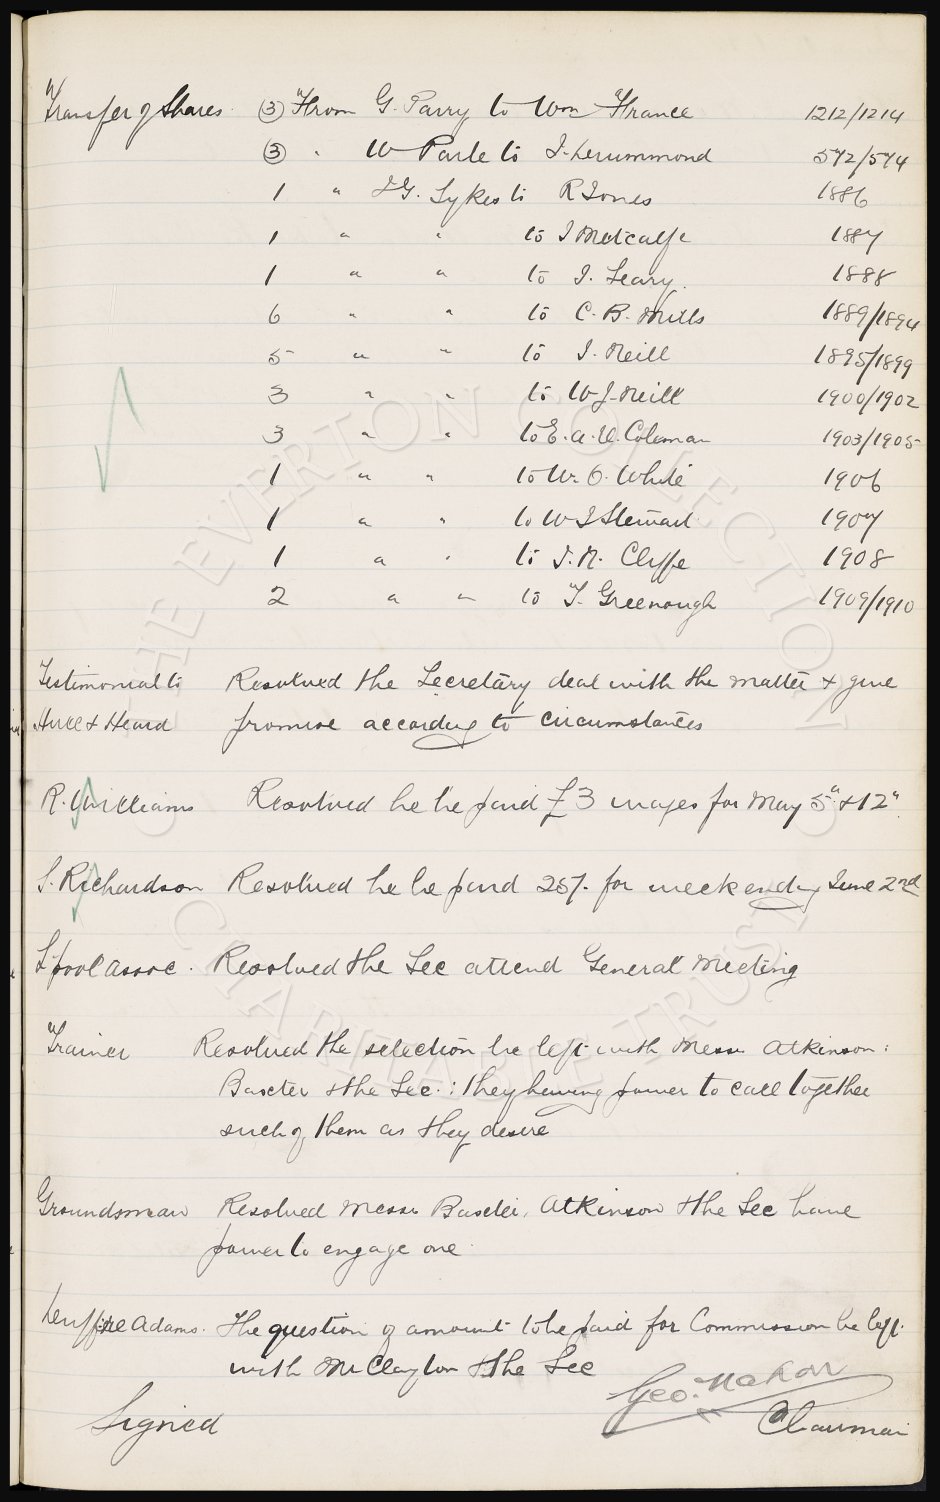 Transfer of Shares (3) From G. Parry to Wm France 1212/1214
(3) " W Parle to J. Drummond 572/574
1 " J G. Sykes to R Jones 1886
1 " " to J Metcalfe 1887
1 " " to J. Leary. 1888
6 " " to C. B. Mills 1889/1894
5 " " to J. Neill 1895/1899
3 " " to W J. Neill 1900/1902
3 " " to E. A. Coleman 1903/1905
1 " " to Wm O. White 1906
1 " " to W J Stewart 1907
1 " " to J. N. Cliffe 1908
2 " " to T. Greenough 1909/1910
Testimonial to Resolved the Secretary deal with the matter & give
Hull & Heard promise according to circumstances
R. Williams Resolved he be paid £3 wages for May 5" & 12".
S. Richardson Resolved he be paid 25/- for week ending June 2nd
L'pool Assoc. Resolved the Sec attend General Meeting
Trainer Resolved the selection be left with Messrs Atkinson:
Baxter & the Sec.: they having power to call together
such of them as they desire
Groundsman Resolved Messrs Baxter, Atkinson & the Sec have
power to engage one
Adams. The question of amount to be paid for Commission be left
with Mr Clayton & the Sec
Signed Geo. Mahon
Chairman
THE EVERTON COLLECTION
CHARITABLE TRUST